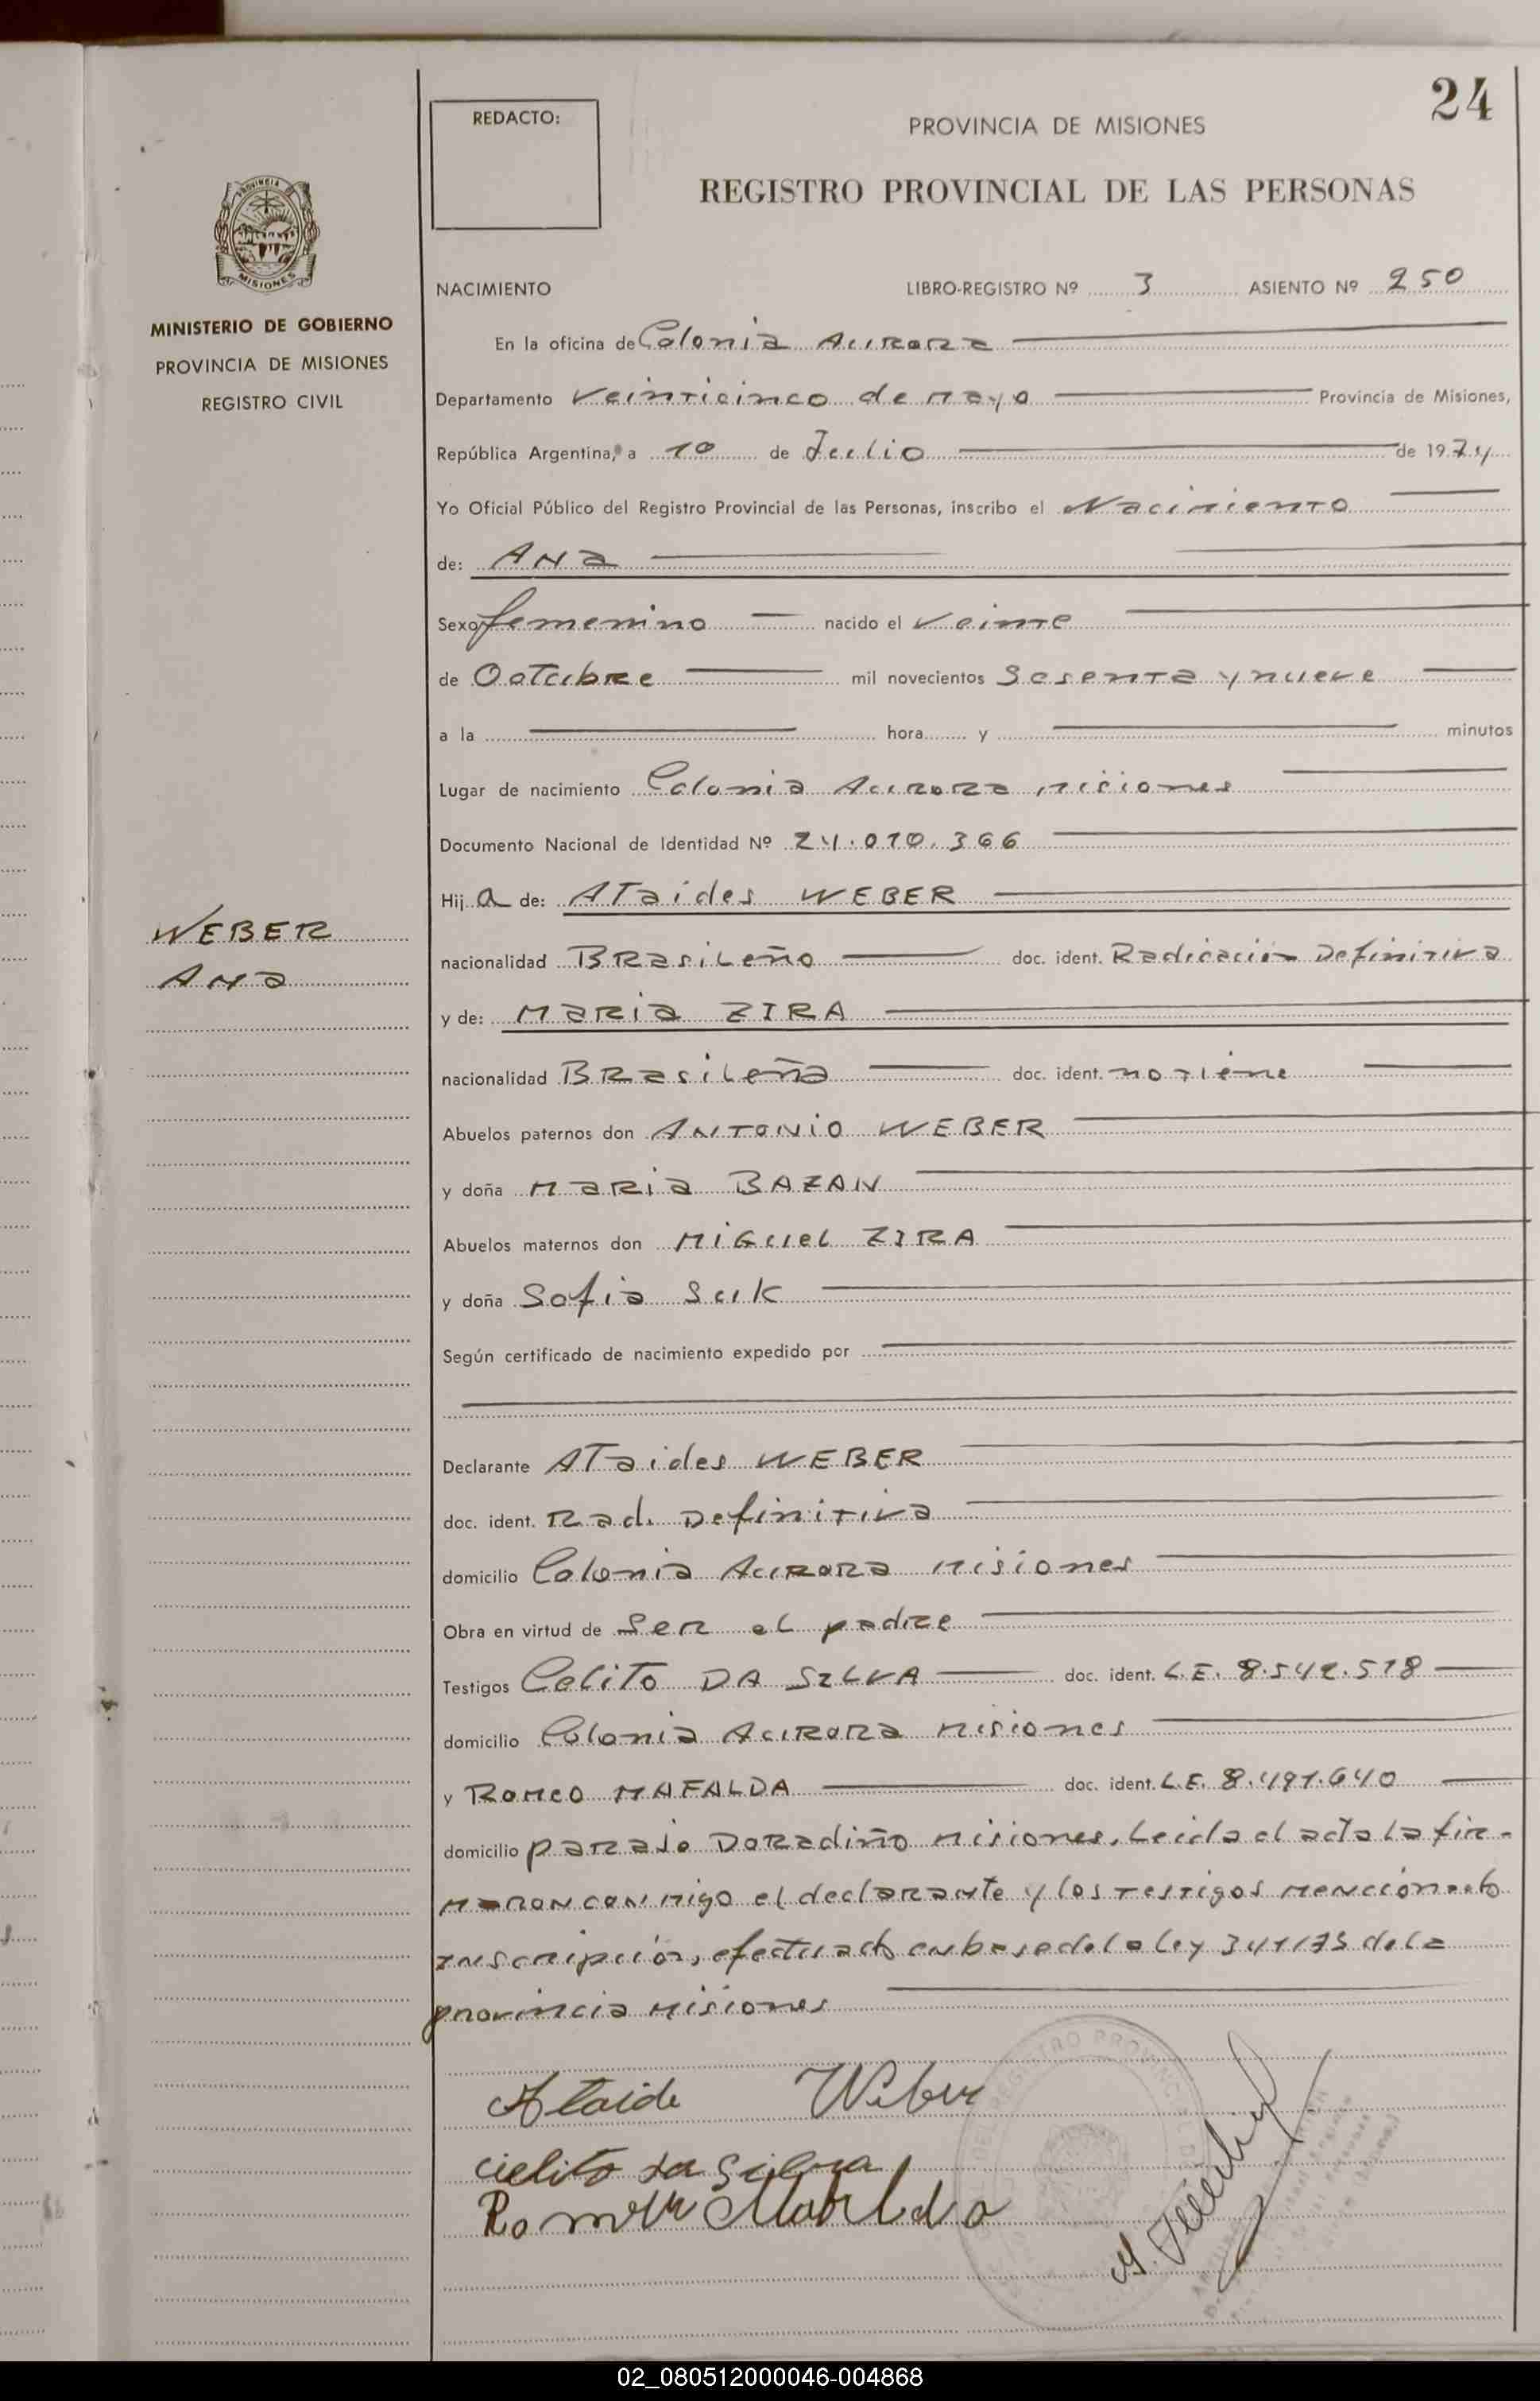 24
REDACTO:
PROVINCIA DE MISIONES
REGISTRO PROVINCIAL DE LAS PERSONAS
PROVINCIA
MISIONES
MINISTERIO DE GOBIERNO
PROVINCIA DE MISIONES
REGISTRO CIVIL
NACIMIENTO LIBRO-REGISTRO Nº 3 ASIENTO Nº 250
En la oficina de Colonia Aurora
Departamento Veinticinco de Mayo Provincia de Misiones,
República Argentina, a 10 de Julio de 1974
Yo Oficial Público del Registro Provincial de las Personas, inscribo el Nacimiento
de: Ana
Sexo femenino nacido el Veinte
de Octubre mil novecientos Sesenta y nueve
a la hora y minutos
Lugar de nacimiento Colonia Aurora Misiones
Documento Nacional de Identidad Nº 24.010.366
Hij a de: ATaides WEBER
WEBER
Ana
nacionalidad BRasileño doc. ident. Radicación Definitiva
y de: MaRia ZIRA
nacionalidad BRasileña doc. ident. no tiene
Abuelos paternos don ANTONIO WEBER
y doña MaRia BAZAN
Abuelos maternos don MiGuel ZIRA
y doña Sofia Suk
Según certificado de nacimiento expedido por
Declarante ATaides WEBER
doc. ident. Rad. Definitiva
domicilio Colonia Aurora Misiones
Obra en virtud de Ser el padre
Testigos Celito DA SILVA doc. ident. L.E. 8.542.518
domicilio Colonia Aurora Misiones
y Romeo MAFALDA doc. ident. L.E. 8.491.640
domicilio paraje Doradiño Misiones. Leida el acta la fir-
maron conmigo el declarante y los testigos mencionado
Inscripción, efectuado en base de la ley 341/73 de la
provincia Misiones
Ataide Weber
cielito da Silva